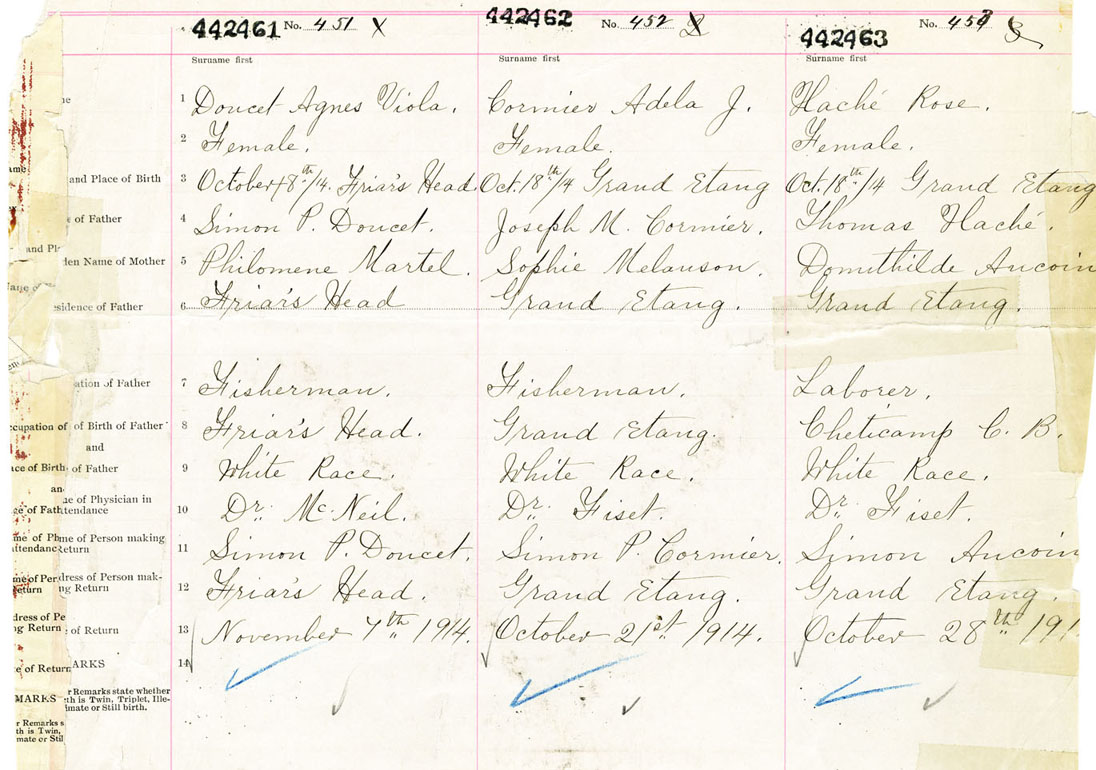 442461 No. 451 442462 No. 452 442463 No.
Surname first Surname first Surname first
1 Doucet Agnes Viola. Cormier Adela J. Haché Rose.
2 Female. Female. Female.
and Place of Birth 3 October 18th/14. Friar's Head Oct. 18th/14 Grand Etang Oct. 18th/14 Grand Etang
of Father 4 Simon P. Doucet. Joseph M. Cormier. Thomas Haché.
den Name of Mother 5 Philomene Martel. Sophie Melanson. Domithilde Aucoin
sidence of Father 6 Friar's Head Grand Etang. Grand Etang.
ation of Father 7 Fisherman. Fisherman. Laborer.
ccupation of of Birth of Father 8 Friar's Head. Grand Etang. Cheticamp C. B.
and
ace of Birth of Father 9 White Race. White Race. White Race.
an
ne of Physician in
ge of Fath tendance 10 Dr. McNeil. Dr. Fiset. Dr. Fiset.
me of Ph me of Person making
attendanc Return 11 Simon P. Doucet. Simon P. Cormier. Simon Aucoin
me of Per dress of Person mak-
eturn ng Return 12 Friar's Head. Grand Etang. Grand Etang.
dress of Pe
ng Return of Return 13 November 7th 1914. October 21st 1914. October 28th 191
e of Return ARKS 14
MARKS r Remarks state whether
th is Twin, Triplet, Ille-
imate or Still birth.
r Remarks s
th is Twin,
mate or Stil